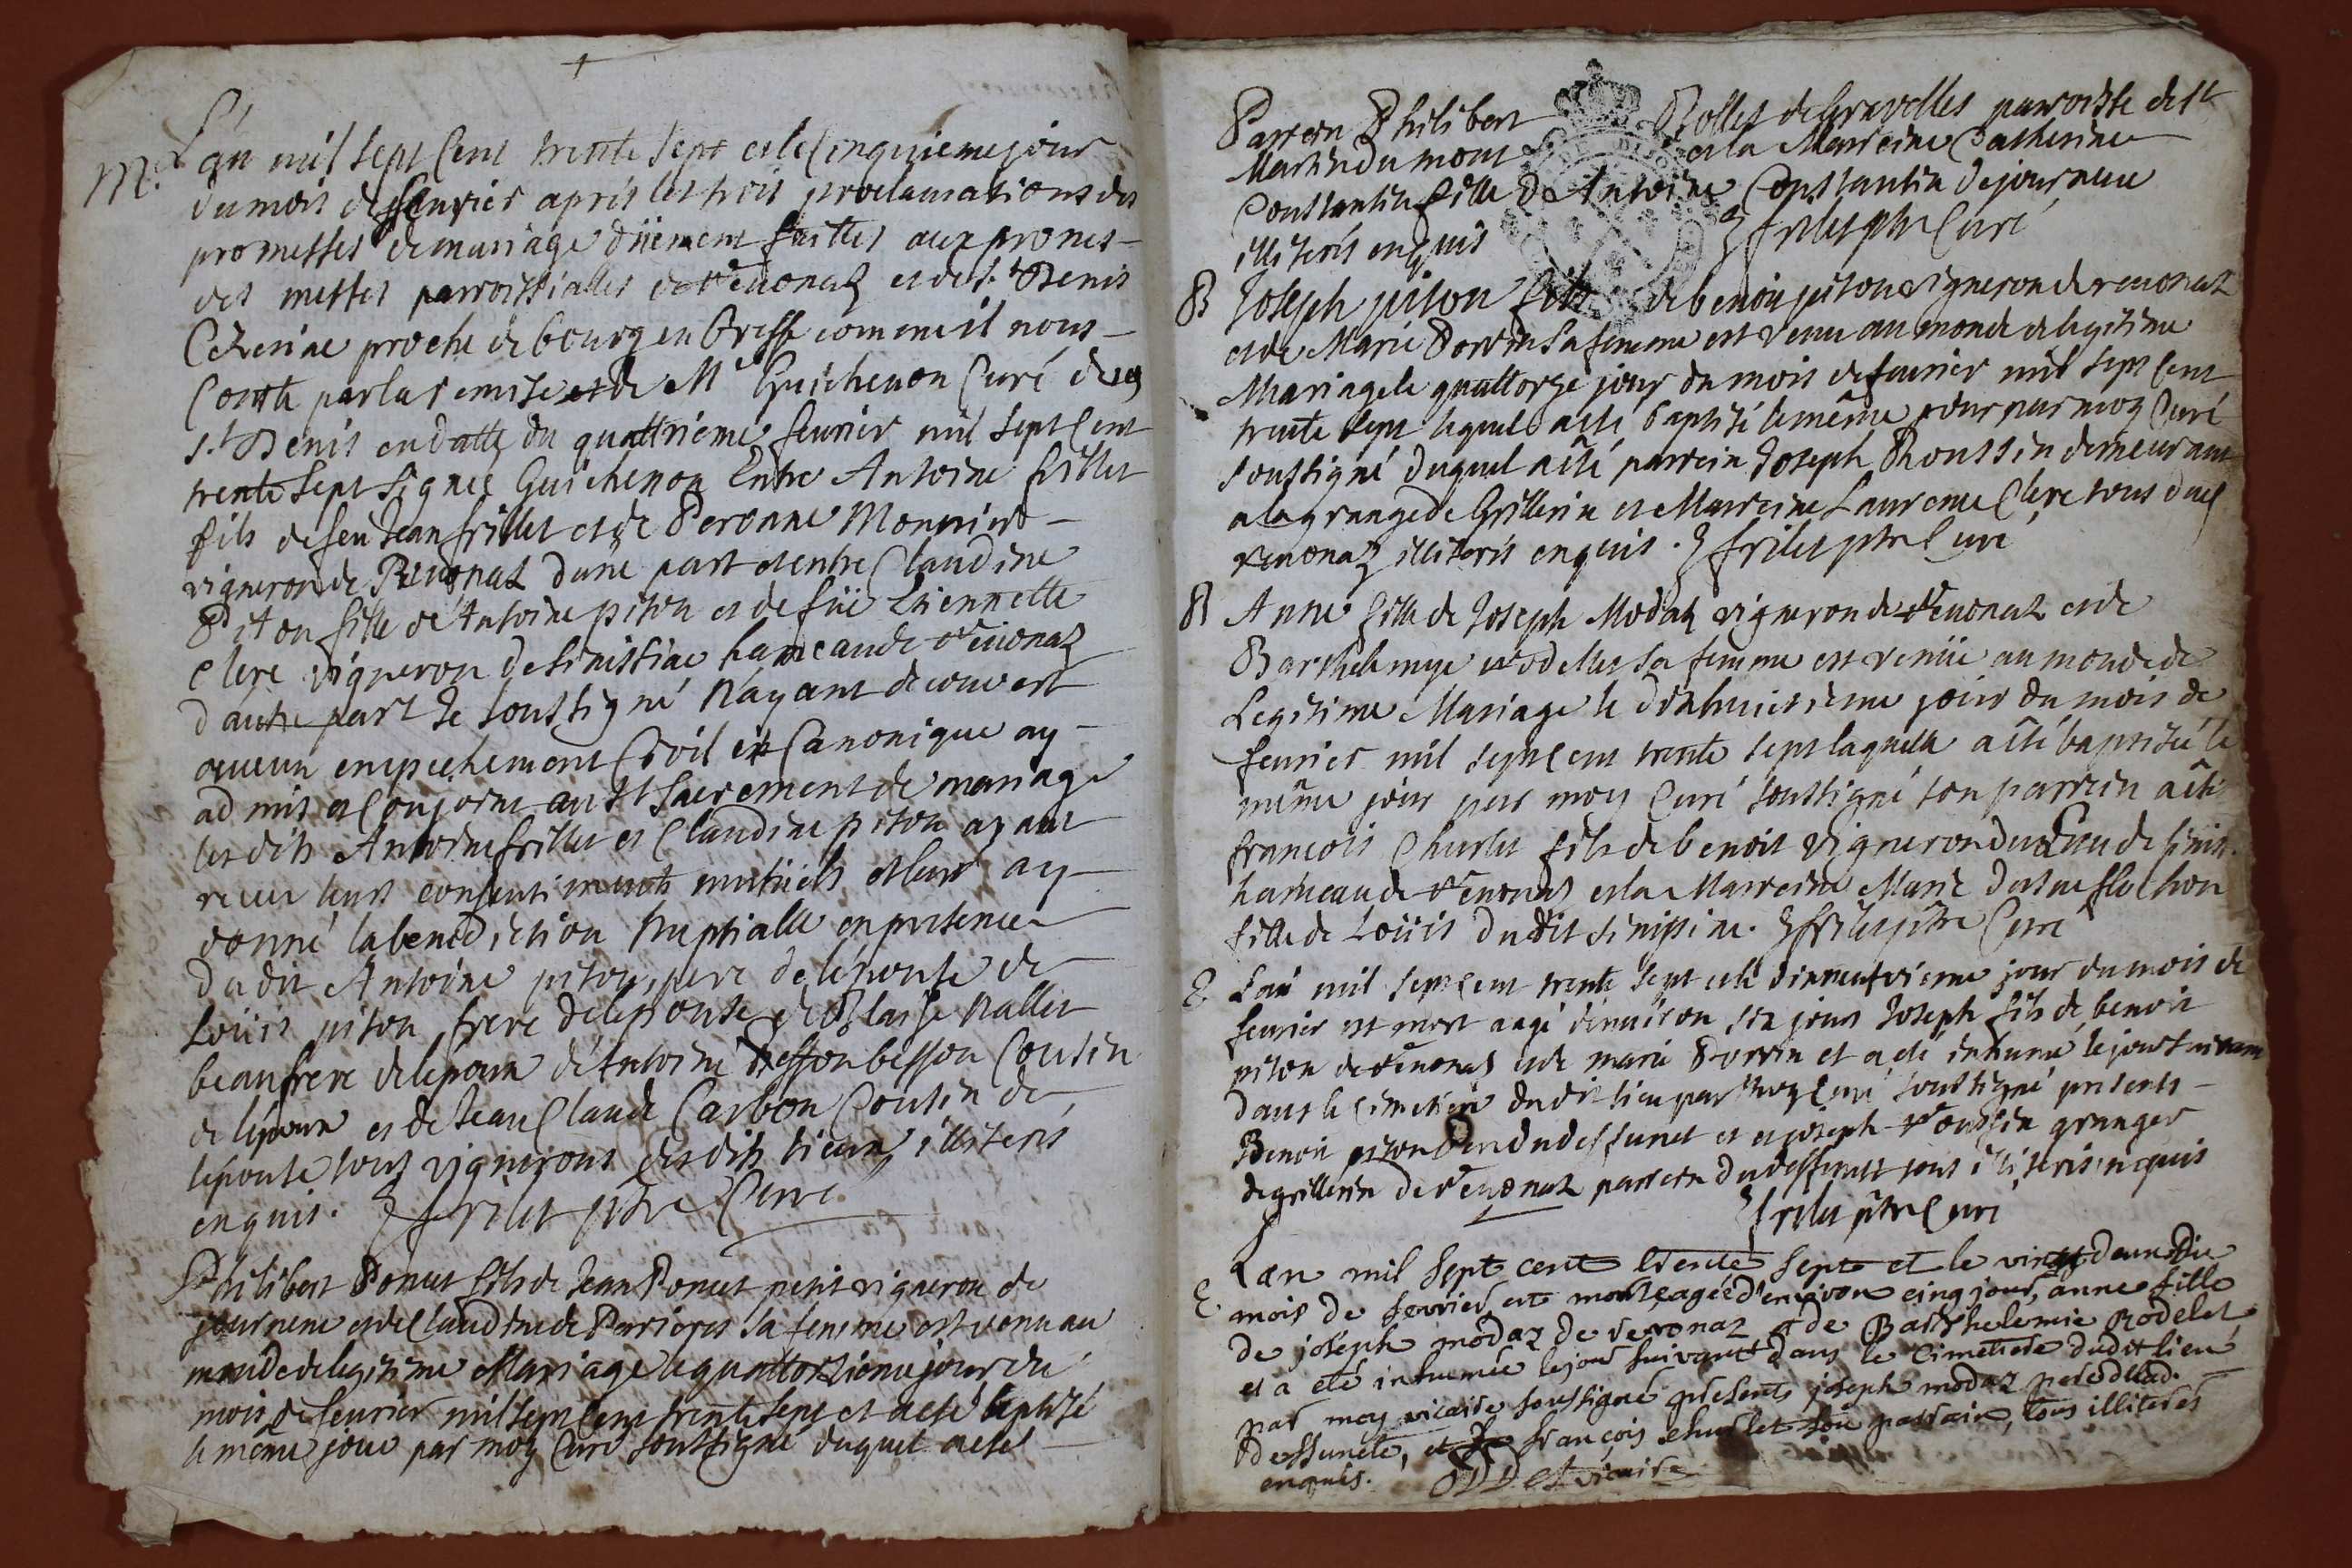 M.
L'an mil sept cent trente sept et le cinquieme jour
du mois de feuvrier apris les trois proclamations des
promesses de mariage düement faittes aux prones
des messes parroissialles de Reuonaz et de st. Denis
Cezeriae proche de bourg en bresse comme il nous
Conste par la remise de Mr Guichenon Curé de
st. Denis en datte du quattrieme feurier mil sept cent
trente sept signee Guichenon Entre Antoine frillet
fils de feu Jean frillet et de Peronne Monnier
vigneron de Reuonaz dune part et entre Claudine
Piton fille de Antoine piton et de füe Etiennette
Clere vigneron de Senissiae hameau de Reuonaz
dautre part Je soussigné n'ayant decouvert
aucun empechement Civil et Canonique ay
admis et Conjoint au st Sacrement de mariage
lesdits Antoine frillet et Claudine piton ayant
receu leurs consentiments mutüels et leur ay
donné la benediction Nuptialle en presence
dudit Antoine piton, pere de lépouse de
Loüis piton frere de lepouse de Blaise Nallet
beaufrere de lepoux d'Antoine besson Cousin
de lépoux et de Jean Claude Carbon Cousin de
lépouse tous vignerons desdits lieux illiteris
enquis. frilet ptre Curé
Philibert Poncet fils de Jean Poncet petit vigneron de
journeu et de Claudine de Parieres sa femme est venu au
monde de legitime Mariage le quattorzieme jour du
mois de feurier mil sept cent trente sept et a eté baptizé
le même jour par moy Curé soussigné duquel a eté
Parrein Philibert Rollet de Gravelles parroisse de st
Martin du mont et la Marreine Catherine
Constantin fille de Antoine Constantin de journeu
illiteris enquis frilet ptre Curé
B Joseph piton fils de benoit piton vigneron de reuonaz
et de Marie Perrin sa femme est venu au monde de legitime
Mariage le quattorze jour du mois de feurier mil sept cent
trente sept lequel a eté baptizé le même jour par moy Curé
soussigné duquel a eté parrein Joseph Roussin demeurant
a la grange de Grillerin et Marreine Laurence Clere tous de
reuonaz illiteris enquis. frilet ptre Curé
B Anne fille de Joseph Modaz vigneron de Reuonaz et de
Barthelemye Rodellet sa femme est venüe au monde de
Legitime Mariage le dixhuictieme jour du mois de
feurier mil sept cent trente sept laquelle a eté baptizée le
même jour par moy Curé soussigné son parrein a eté
francois Churlet fils de benoit vigneron du lieu de sinis.
hameau de Reuonas et la Marreine Marie
fille de Loüis dudit sinissiae. frilet ptre Curé
E L'an mil sept cent trente sept et le dixneufvieme jour du mois de
feurier est mort aagé denuiron six jours Joseph fils de benoit
piton de Reuonas et de marie Perrin et a eté inhumé le jour suivant
dans le Cimetiere dudit lieu par moy Curé soussigné presents
Benoit piton pere du deffunct et joseph Roussin granger
de grillerin de Reuonaz parrein du deffunct tous illiteris enquis
frilet ptre Curé
E Lan mil sept cent trente sept et le vingt deux du
mois de fevrier est morte agée d'environ cinq jour, anne fille
de joseph modaz de revonaz et de Barthelemie Rodelet
et a eté inhumée le jour suivant dans le Cimetiere dudit lieu
par moy vicaire soussigné presents joseph modaz pere de lad.
deffuncte, et francois churlet son parrain, tous illiteres
enquis. vicaire